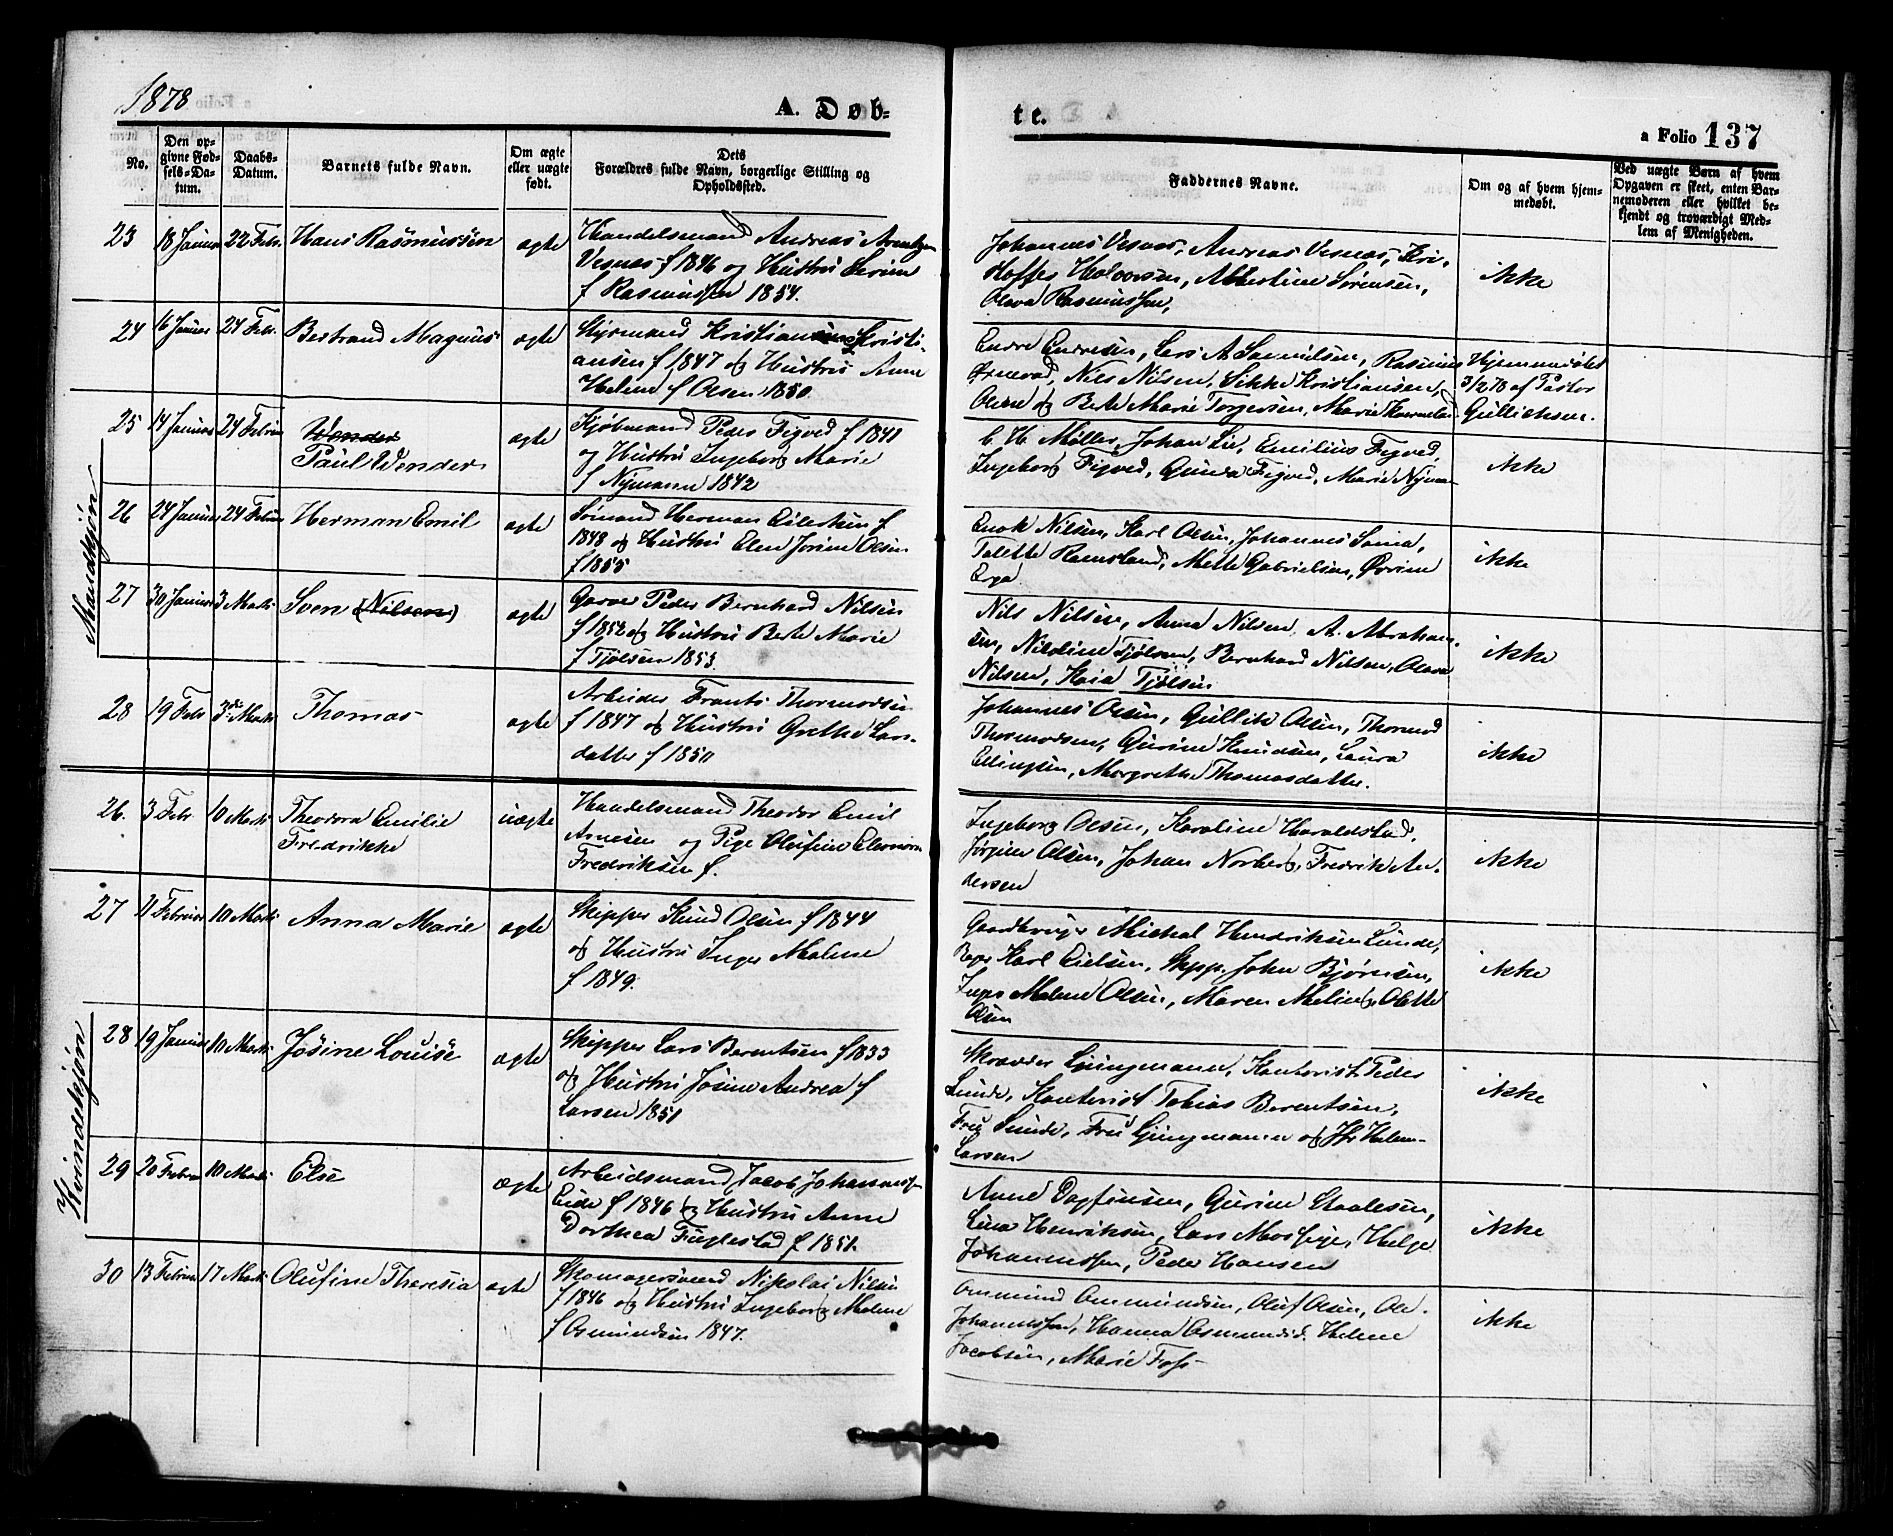 1878
A. Døb-
te.
a Folio 137
No.
Den op-
givne Fød-
sels-Da-
tum.
Daabs-
Datum.
Barnets fulde Navn.
Om ægte
eller uægte
født.
Dets
Forældres fulde Navn, borgerlige Stilling og
Opholdssted.
Faddernes Navne.
Om og af hvem hjem-
medøbt.
Ved uægte Børn af hvem
Opgaven er skeet, enten Bar-
nemoderen eller hvilket be-
kjendt og troværdigt Med-
lem af Menigheden.
Mandkjøn
23 18 Januar 22 Febr. Hans Rasmussen ægte
Handelsmand Andreas
Vesnes f 1846 og Hustru Serine
f Rasmussen 1854.
Johannes Vesnes, Andreas Vesnes, Kri-
stoffer Halvorsen, Albertine Sørensen,
Olava Rasmussen,
ikke
24 16 Januar 24 Febr. Bertrand Magnus ægte
Styrmand Kristian Kristi-
ansen f. 1847 og Hustru Anne
Helene f Olsen 1850
Endre Endresen, Lars A. Samuelsen, Rasmus
Nils Nilsen, Sikke Kristiansen,
Olene og Berte Marie Torgersen, Marie
Hjemmedøbt
3/2 78 af Pastor
Gullichsen.
25 14 Januar 24 Februar Wender
Paul Wender ægte
Kjøbmand Peder Figved f 1841
og Hustru Ingeborg Marie
f Nymann 1842
C. H. Møller, Johan Lie, Emilius Figved,
Ingeborg Figved, Gunda Figved, Marie Nyman-
ikke
26 24 Januar 24 Februar Herman Emil ægte
Sømand Herman Eilertsen f
1848 og Hustru Elen Josine Olsen
f 1855
Enok Nilsen, Karl Olsen, Johannes Soma,
Talette Ramsland, Mette Gabrielsen, Øvrine
Erga
ikke
27 30 Januar 3 Marts Sven (Nilsen) ægte
Garver Peder Bernhard Nilsen
f 1852 og Hustru Berte Marie
f Tjølsen 1853.
Nils Nilsen, Anna Nilsen, A. Abraham-
sen, Nikoline Tjølsen, Bernhard Nilsen, Olava
Nilsen, Kaia Tjølsen
ikke
28 19 Febr 3die Marts Thomas ægte
Arbeider Frants Thormodsen
f 1847 og Hustru Grethe Lars-
datter f 1850
Johannes Olsen, Gullik Olsen, Thormod
Thormodsen, Gurine Knudsen, Laura
Ellingsen, Margrethe Thomasdatter.
ikke
Kvindekjøn
26. 3 Febr. 10 Marts Theodora Emilie
Fredrikke uægte
Handelsmand Theodor Emil
Arnesen og Pige Olufine Elenora
Fredriksen f.
Ingeborg Olsen, Karoline Haraldstad,
Jørgine Olsen, Johan Norberg, Fredrik An-
dersen
ikke
27 11 Februar 10 Marts Anna Marie ægte
Skipper Knud Olsen f 1844
og Hustru Inger Malene
f 1849.
Gaardbruger Michal Hendriksen Lunde,
Karl Eielsen, Skipp. John Bjørnsen,
Inger Malene Olsen, Maren Meling, Olette
Olsen
ikke
28 19 Januar 10 Marts Josine Louise ægte
Skipper Lars Berentsen f 1833
og Hustru Josine Andrea f
Larsen 1851
Skrædder Ljungmann, Kontorist Peder
Lunde, Kontorist Tobias Berentsen,
Fru Lunde, Fru Ljungmann og Helene
Larsen
ikke
29 20 Februar 10 Marts Else ægte
Arbeidsmand Jacob Johannessen
Eide f 1846 og Hustru Anne
Dorthea Fuglestad f 1851.
Anne Dagfinsen, Gurine Staalesen,
Lina Henriksen, Lars Mosfeje, Helge
Johannessen, Peder Hansen
ikke
30 13 Februar 17 Marts Olufine Theresia ægte
Skomagersvend Nikolai Nilsen
f 1846 og Hustru Ingeborg Malene
f Osmundsen 1847.
Ommund Ommundsen, Oluf Olsen, Ole
Johannessen, Hanna Osmundsd. Helene
Jacobsen, Marie Foss
ikke